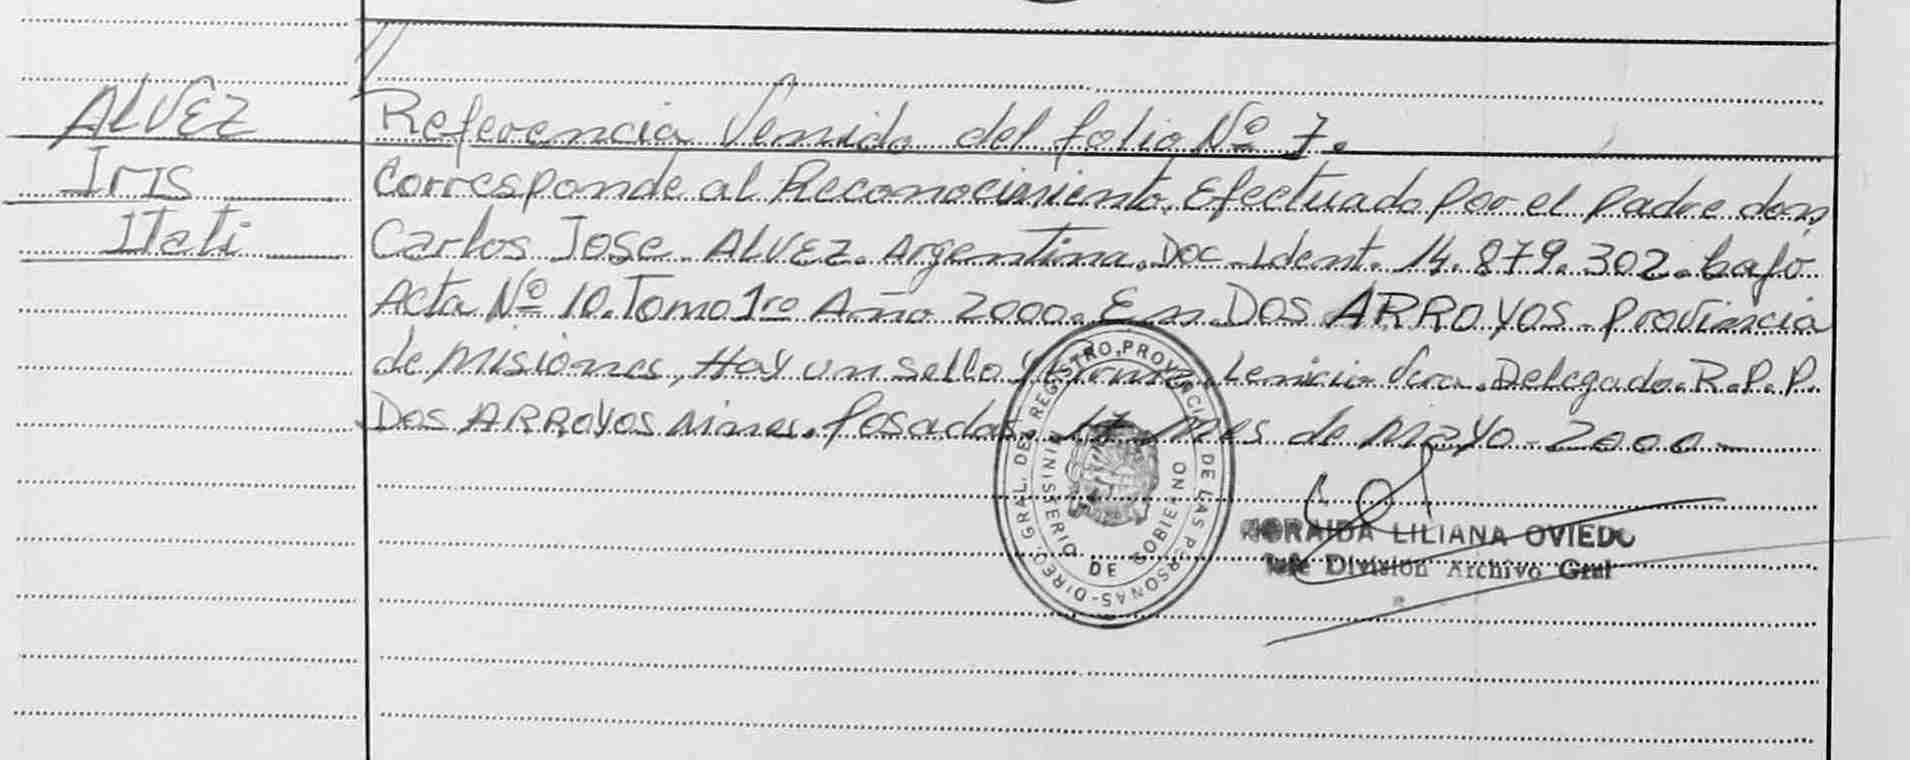 ALVEZ
Iris
Itati
Referencia Venido del folio Nº 7.
Corresponde al Reconocimiento. Efectuado por el padre don,
Carlos Jose. ALVEZ. Argentina. Doc. Ident. 14.879.302. bajo
Acta Nº 10. Tomo 1ro Año 2000. En DOS ARROYOS - Provincia
de Misiones, Hay un sello y firma. Delegado. R.P.P.
DOS ARROYOS Mnes. Posadas, 17 mes de Mayo - 2000 -
DIREC. GRAL. DEL REGISTRO PROVINCIAL DE LAS PERSONAS -
MINISTERIO DE GOBIERNO
LILIANA OVIEDO
Jefe División Archivo Gral